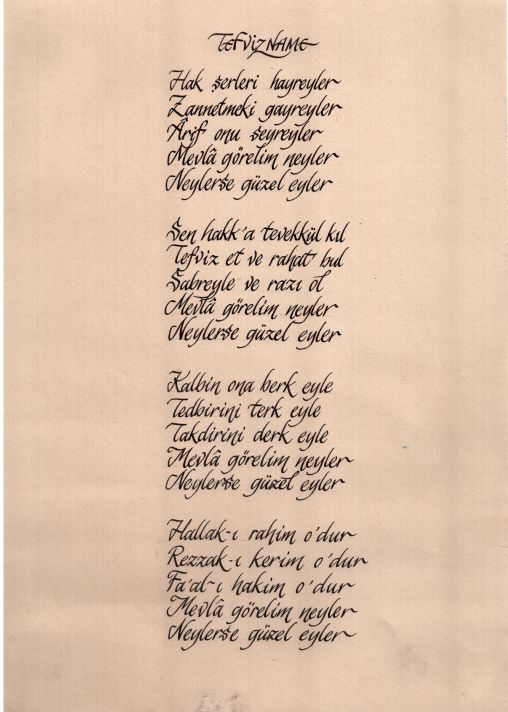 TEFVİZNAME
Hak şerleri hayreyler
Zannetmeki gayreyler
Ârif onu seyreyler
Mevlâ görelim neyler
Neylerse güzel eyler
Sen hakk'a tevekkül kıl
Tefviz et ve rahat bul
Sabreyle ve razı ol
Mevlâ görelim neyler
Neylerse güzel eyler
Kalbin ona berk eyle
Tedbirini terk eyle
Takdirini derk eyle
Mevlâ görelim neyler
Neylerse güzel eyler
Hallak-ı rahim o'dur
Rezzak-ı kerim o'dur
Fa'al-ı hakim o'dur
Mevlâ görelim neyler
Neylerse güzel eyler